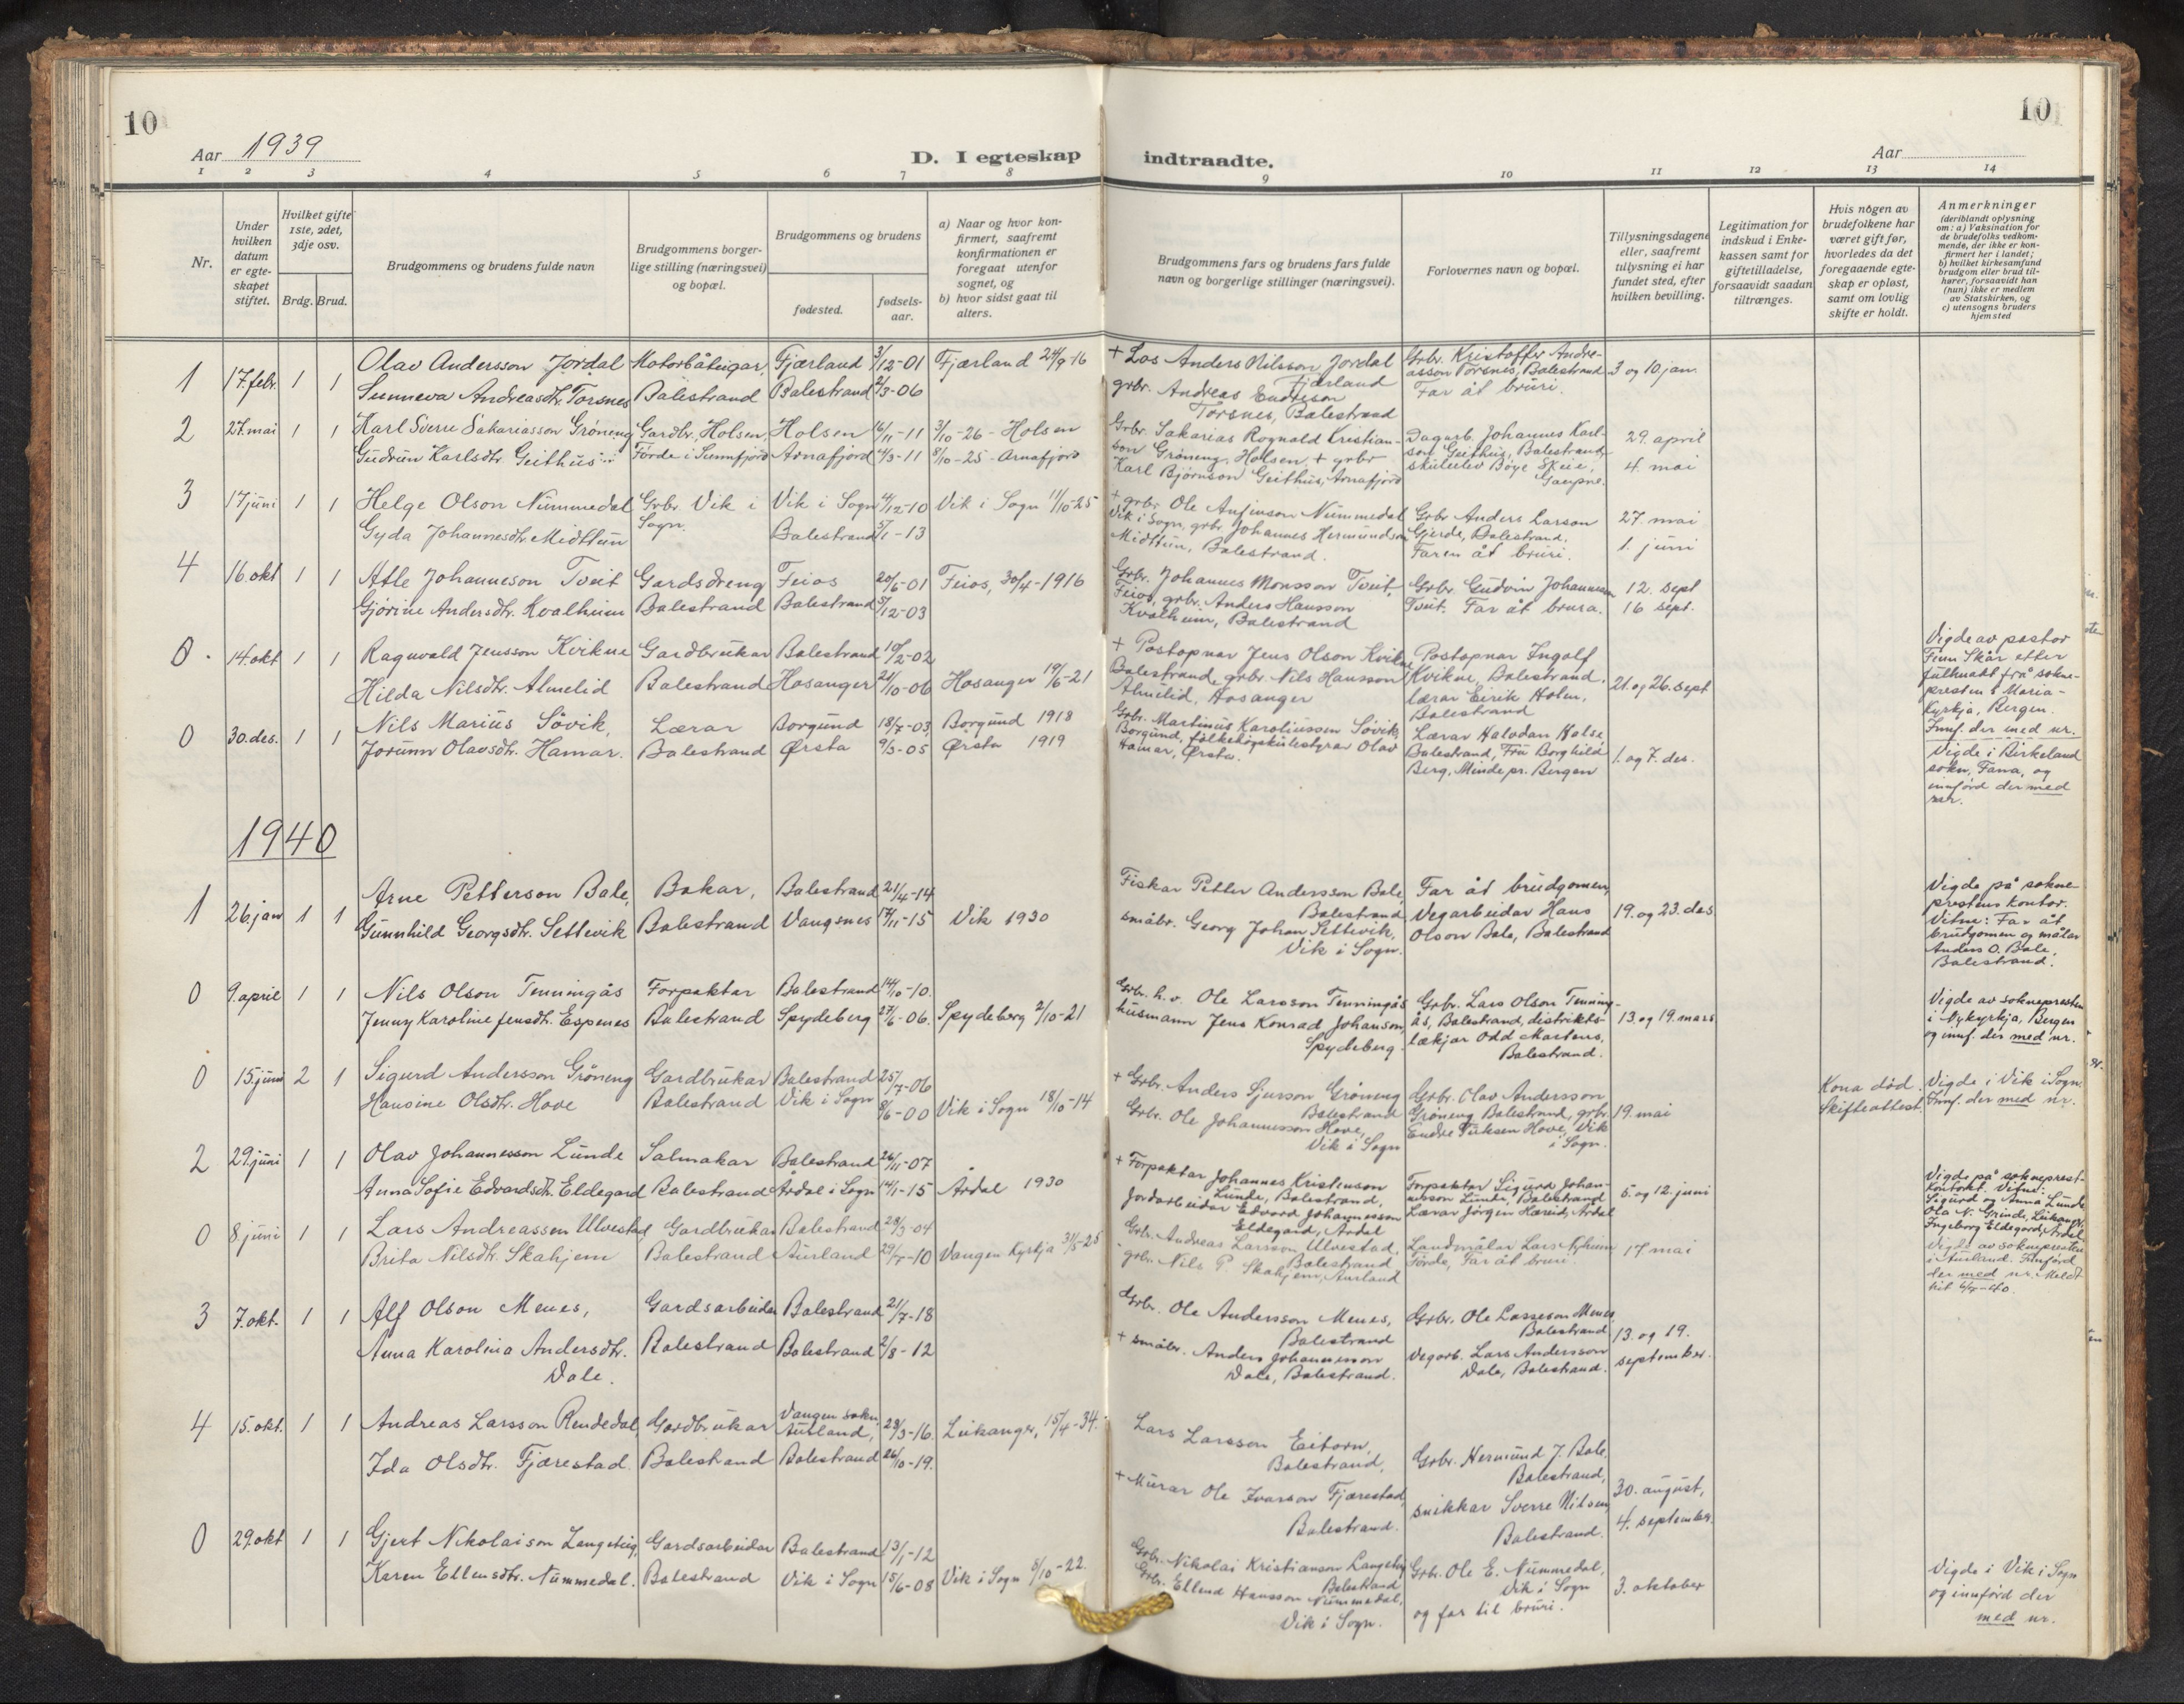 10
10
Aar 1939
D. I egteskap indtraadte.
Aar
1 2 3 4 5 6 7 8 9 10 11 12 13 14
Nr.
Under hvilken datum er egteskapet stiftet.
Hvilket gifte 1ste, 2det, 3dje osv.
Brdg. Brud.
Brudgommens og brudens fulde navn
Brudgommens borgerlige stilling (næringsvei) og bopæl.
Brudgommens og brudens
fødested.
fødselsaar.
a) Naar og hvor konfirmert, saafremt konfirmationen er foregaat utenfor sognet, og
b) hvor sidst gaat til alters.
Brudgommens fars og brudens fars fulde navn og borgerlige stillinger (næringsvei).
Forlovernes navn og bopæl.
Tillysningsdagene eller, saafremt tillysning ei har fundet sted, efter hvilken bevilling.
Legitimation for indskud i Enkekassen samt for giftetilladelse, forsaavidt saadan tiltrænges.
Hvis nogen av brudefolkene har været gift før, hvorledes da det foregaaende egteskap er opløst, samt om lovlig skifte er holdt.
Anmerkninger
(deriblandt oplysning om: a) Vaksination for de brudefolks vedkommende, der ikke er konfirmert her i landet; b) hvilket kirkesamfund brudgom eller brud tilhører, forsaavidt han (hun) ikke er medlem av Statskirken, og c) utensogns bruders hjemsted
1 17. febr. 1 1 Olav Andersson Jordal Motorbåteigar, Fjærland 3/12-01 Fjærland 24/9-16 + Los Anders Nilsson Jordal Grbr. Kristoffer Andre-
Sunneva Andreasdtr. Torsnes Balestrand Balestrand 2/3-06 Fjærland asson Torsnes, Balestrand 3 og 10. jan.
grbr. Andreas Endreson Far åt bruri.
Torsnes, Balestrand
2 27. mai 1 1 Karl Sverre Sakariasson Grøneng Gardbr., Holsen, Holsen 16/11-11 3/10-26 - Holsen Grbr. Sakarias Rognald Kristian- Dagarb. Johannes Karl- 29. april
Gudrun Karlsdtr. Geithus Førde i Sunnfjord Arnafjord 4/3-11 8/10-25 - Arnafjord son Grøneng, Holsen, + grbr. son Geithus, Balestrand
Karl Bjørnson Geithus, Arnafjord skuleelev Böye Skeie, Gaupne. 4. mai
3 17 juni 1 1 Helge Olson Nummedal Grbr. Vik i Vik i Sogn 4/12-10 Vik i Sogn 11/10-25 + grbr. Ole Anfinson Nummedal Grbr Anders Larson 27. mai
Gyda Johannesdtr. Midttun Sogn. Balestrand 5/1-13 Vik i Sogn, grbr. Johannes Hermundson Gjerde, Balestrand. 1. juni
Midttun, Balestrand. Faren åt bruri.
4 16. okt 1 1 Atle Johanneson Tveit Gardsdreng Feios 20/5-01 Feios, 30/4-1916 Grbr. Johannes Monsson Tveit, Grbr. Gudvin Johannesson 12. sept
Gjørine Andersdtr. Kvalheim Balestrand Balestrand 5/12-03 Feios, grbr. Anders Hansson Tveit. Far åt brura. 16 sept.
Kvalheim, Balestrand
0. 14. okt 1 1 Ragnvald Jensson Kvikne Gardbrukar Balestrand 19/2-02 + Postopnar Jens Olson Kvikne Postopnar Ingolf
Hilda Nilsdtr. Almelid Balestrand Hosanger 21/10-06 Hosanger 19/6-21 Balestrand, grbr. Nils Hansson Kvikne, Balestrand, 21. og 26. sept
Almelid, Hosanger lærar Eirik Holen, Balestrand
Vigde av pastor Finn Skår etter fullmakt frå sokne-
presten i Maria-
kyrkja, Bergen.
Innf. der med nr.
0 30. des. 1 1 Nils Marius Søvik, Lærar Borgund 18/7-03 Borgund 1918 Grbr. Martinus Karoliussen Søvik, Lærar Halvdan Halse
Jorunn Olavsdtr. Hamar. Balestrand Ørsta 9/3-05 Ørsta 1919 Borgund, folkehøgskulestyrar Olav Balestrand, Fru Borghild 1. og 7. des.
Hamar, Ørsta. Berg, Minde pr. Bergen
Vigde i Birkeland sokn, Fana, og innførd der med nr.
1940
1 26. jan 1 1 Arne Petterson Bale, Bakar, Balestrand 21/4-14 Fiskar Petter Andersson Bale, Far åt brudgomen,
Gunnhild Georgsdtr. Settevik Balestrand Vangsnes 17/11-15 Vik 1930 Balestrand Vegarbeidar Hans 19. og 23. des
småbr. Georg Johan Settevik, Olson Bale, Balestrand
Vik i Sogn.
Vigde på sokne-
prestens kontor.
Vitne: Far åt
brudgomen og målar
Anders O. Bale,
Balestrand.
0 9. april 1 1 Nils Olson Tenningås Forpaktar Balestrand 14/10-10. Grbr. h. v. Ole Larsson Tenningås Grbr. Lars Olson Tenning-
Jenny Karoline Jensdtr. Espenes Balestrand Spydeberg 27/6-06. Spydeberg 2/10-21 husmann Jens Konrad Johanson, ås, Balestrand, distrikts- 13. og 19. mars
Spydeberg. lækjar Odd Martens, Balestrand.
Vigde av soknepresten
i Nykyrkja, Bergen
og innf. der med nr.
0 15. juni 2 1 Sigurd Andersson Grøneng Gardbrukar Balestrand 25/7-06 + Grbr. Anders Sjurson Grøneng Grbr. Olav Andersson
Hansine Olsdtr. Hove Balestrand Vik i Sogn 8/6-00 Vik i Sogn 18/10-14 Balestrand Grøneng Balestrand, grbr. 19. mai
Grbr. Ole Johannesson Hove, Vik i Sogn Endre Hove, Vik i Sogn.
Kona død. Skifteattest.
Vigde i Vik i Sogn.
Innf. der med nr.
2 29. juni 1 1 Olav Johannesson Lunde Salmakar Balestrand 26/11-07 + Forpaktar Johannes Kristenson Forpaktar Sigurd Johan-
Anna Sofie Edvardsdtr. Eldegard Balestrand Årdal i Sogn 14/1-15 Årdal 1930 Lunde, Balestrand, nesson Lunde, Balestrand 5. og 12. juni
Jordarbeidar Edvard Johannesson Eldegard, Årdal Lærar Jørgen Hæreid, Årdal
Vigde på sokneprest-
kontoret. Vitne:
Sigurd og Anna Lunde
Ola N. Grinde, Leikanger,
Ingeborg Eldegard, Årdal
0 8. juni 1 1 Lars Andreassen Ulvestad Gardbrukar Balestrand 28/3-04 Grbr. Andreas Larsson Ulvestad, Landmålar Lars Nyheim
Brita Nilsdtr. Skahjem Balestrand Aurland 29/7-10 Vangen Kyrkja 31/5-25 Balestrand Førde, Far åt bruri. 17. mai
grbr. Nils P. Skahjem, Aurland
Vigde av soknepresten
i Aurland. Innførd
der med nr. Meldt
hit
3 7. okt. 1 1 Alf Olson Menes, Gardsarbeidar Balestrand 21/7-18 Grbr. Ole Andersson Menes, Grbr. Ole Lasseson Menes,
Anna Karolina Andersdtr. Balestrand Balestrand 2/8-12 Balestrand Balestrand 13. og 19.
Dale. + småbr. Anders Johannesson Vegarb. Lars Andersson september.
Dale, Balestrand. Dale, Balestrand.
4 15. okt. 1 1 Andreas Larsson Rendedal, Gardbrukar Vangen sokn, Aurland, 28/3-16. Leikanger, 15/4-34. Lars Larsson Eitorn, Grbr. Hermund J. Bale,
Ida Olsdtr. Fjærestad. Balestrand Balestrand 26/10-19. Balestrand, Balestrand, 30. august,
+ Murar Ole Ivarson Fjærestad, snikkar Sverre Nilsen, 4. september.
Balestrand. Balestrand.
0 29. okt 1 1 Gjert Nikolaison Langeteig, Gardsarbeidar Balestrand 13/1-12 Grbr. Nikolai Kristianson Langeteig Grbr. Ole E. Nummedal,
Karen Ellensdtr. Nummedal. Balestrand Vik i Sogn 15/6-08 Vik i Sogn 8/10-22. Balestrand Vik i Sogn 3. oktober
Grbr. Ellend Hansson Nummedal, og far til bruri.
Vik i Sogn.
Vigde i Vik i Sogn
og innførd der
med nr.